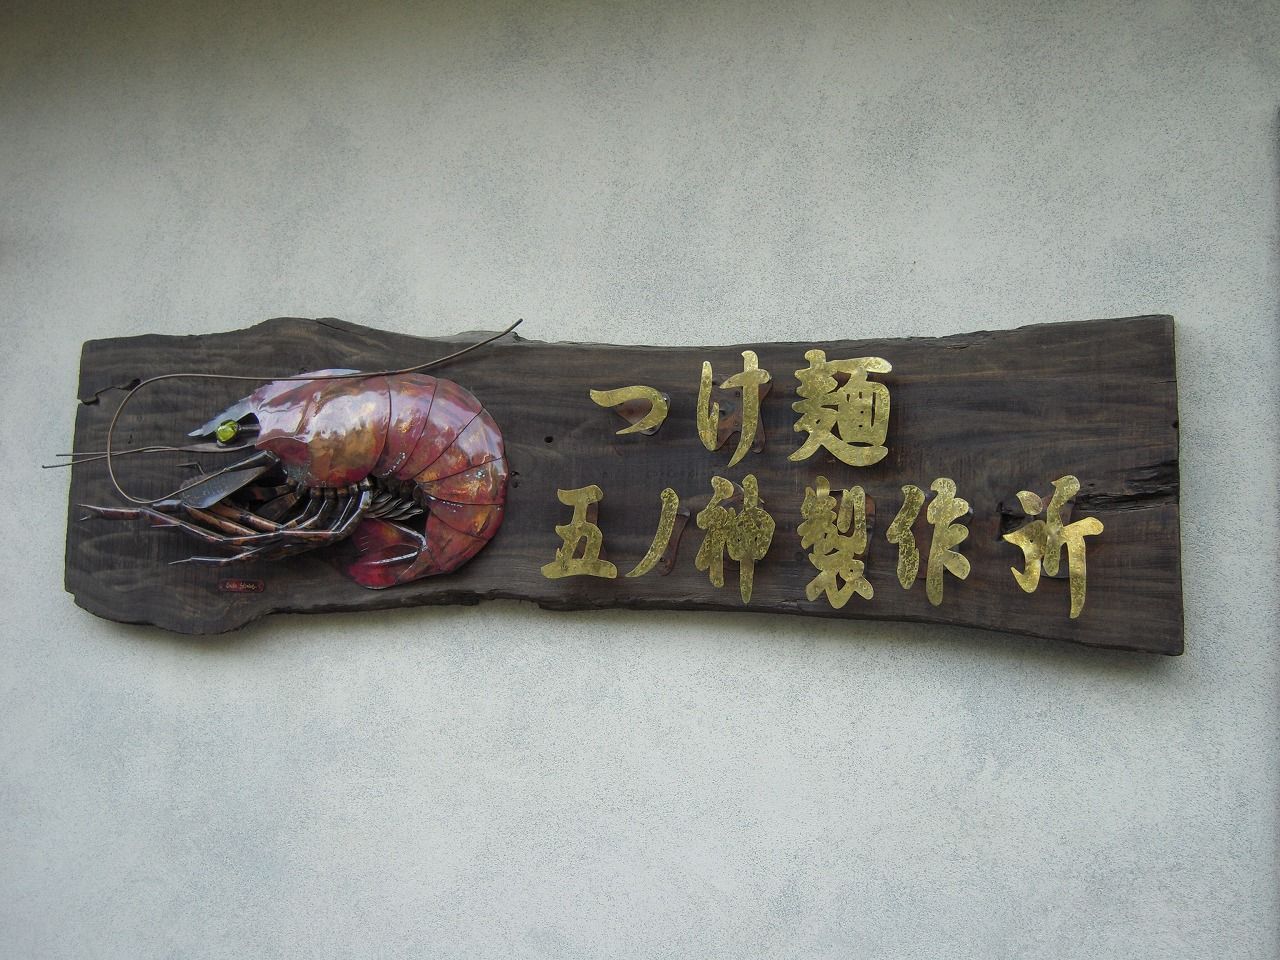 つけ麺
五ノ神製作所